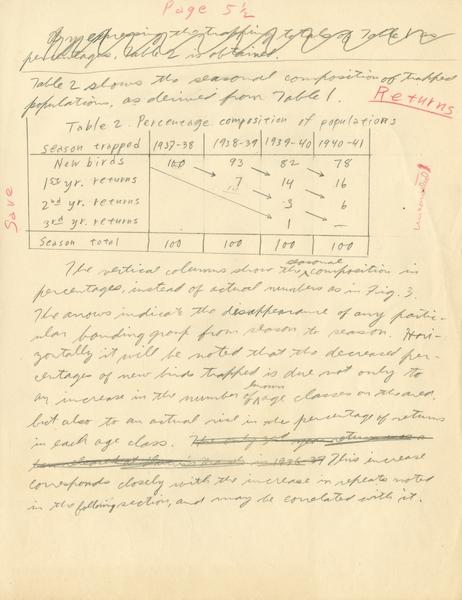 Page 5½
By expressing the trapping totals of Table 1 as
percentages, Table 2 is obtained.
Table 2 shows the seasonal composition of trapped
populations, as derived from Table 1.
Returns
Table 2. Percentage composition of populations
Season trapped 1937-38 1938-39 1939-40 1940-41
New birds 100 93 82 78
1st yr. returns 7 14 16
2nd yr. returns 3 6
3rd yr. returns 1 —
Season total 100 100 100 100
Save
The vertical columns show the seasonal composition in
percentages, instead of actual numbers as in Fig. 3.
The arrows indicate the disappearance of any partic-
ular banding group from season to season. Hori-
zontally it will be noted that the decreased per-
centages of new birds trapped is due not only to
an increase in the number of known age classes on the area,
but also to an actual rise in the percentage of returns
in each age class. This increase
corresponds closely with the increase in repeats noted
in the following section, and may be correlated with it.